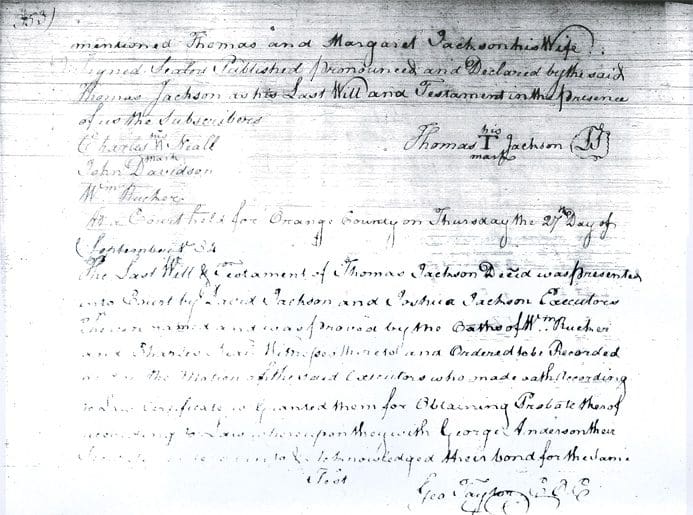 453)
mentioned Thomas and Margaret Jackson his Wife.
Signed Sealed Published pronounced and Declared by the said
Thomas Jackson as his Last Will and Testament in the presence
of us the Subscribers
Charles his N mark Neall
Thomas his T mark Jackson
John Davidson
Wm Rucker
At a Court held for Orange County on Thursday the 27th Day of
September
The Last Will & Testament of Thomas Jackson Deced was presented
into Court by David Jackson and Joshua Jackson Executors
therein named and was proved by the Oaths of Wm Rucker
and Charles Witnesses thereto and Ordered to be Recorded
the Motion of the said Executors who made oath According
to Law Certificate is Granted them for Obtaining Probate thereof
according to Law whereupon they with George Anderson their
Acknowledged their bond for the Same
Test
Geo Taylor